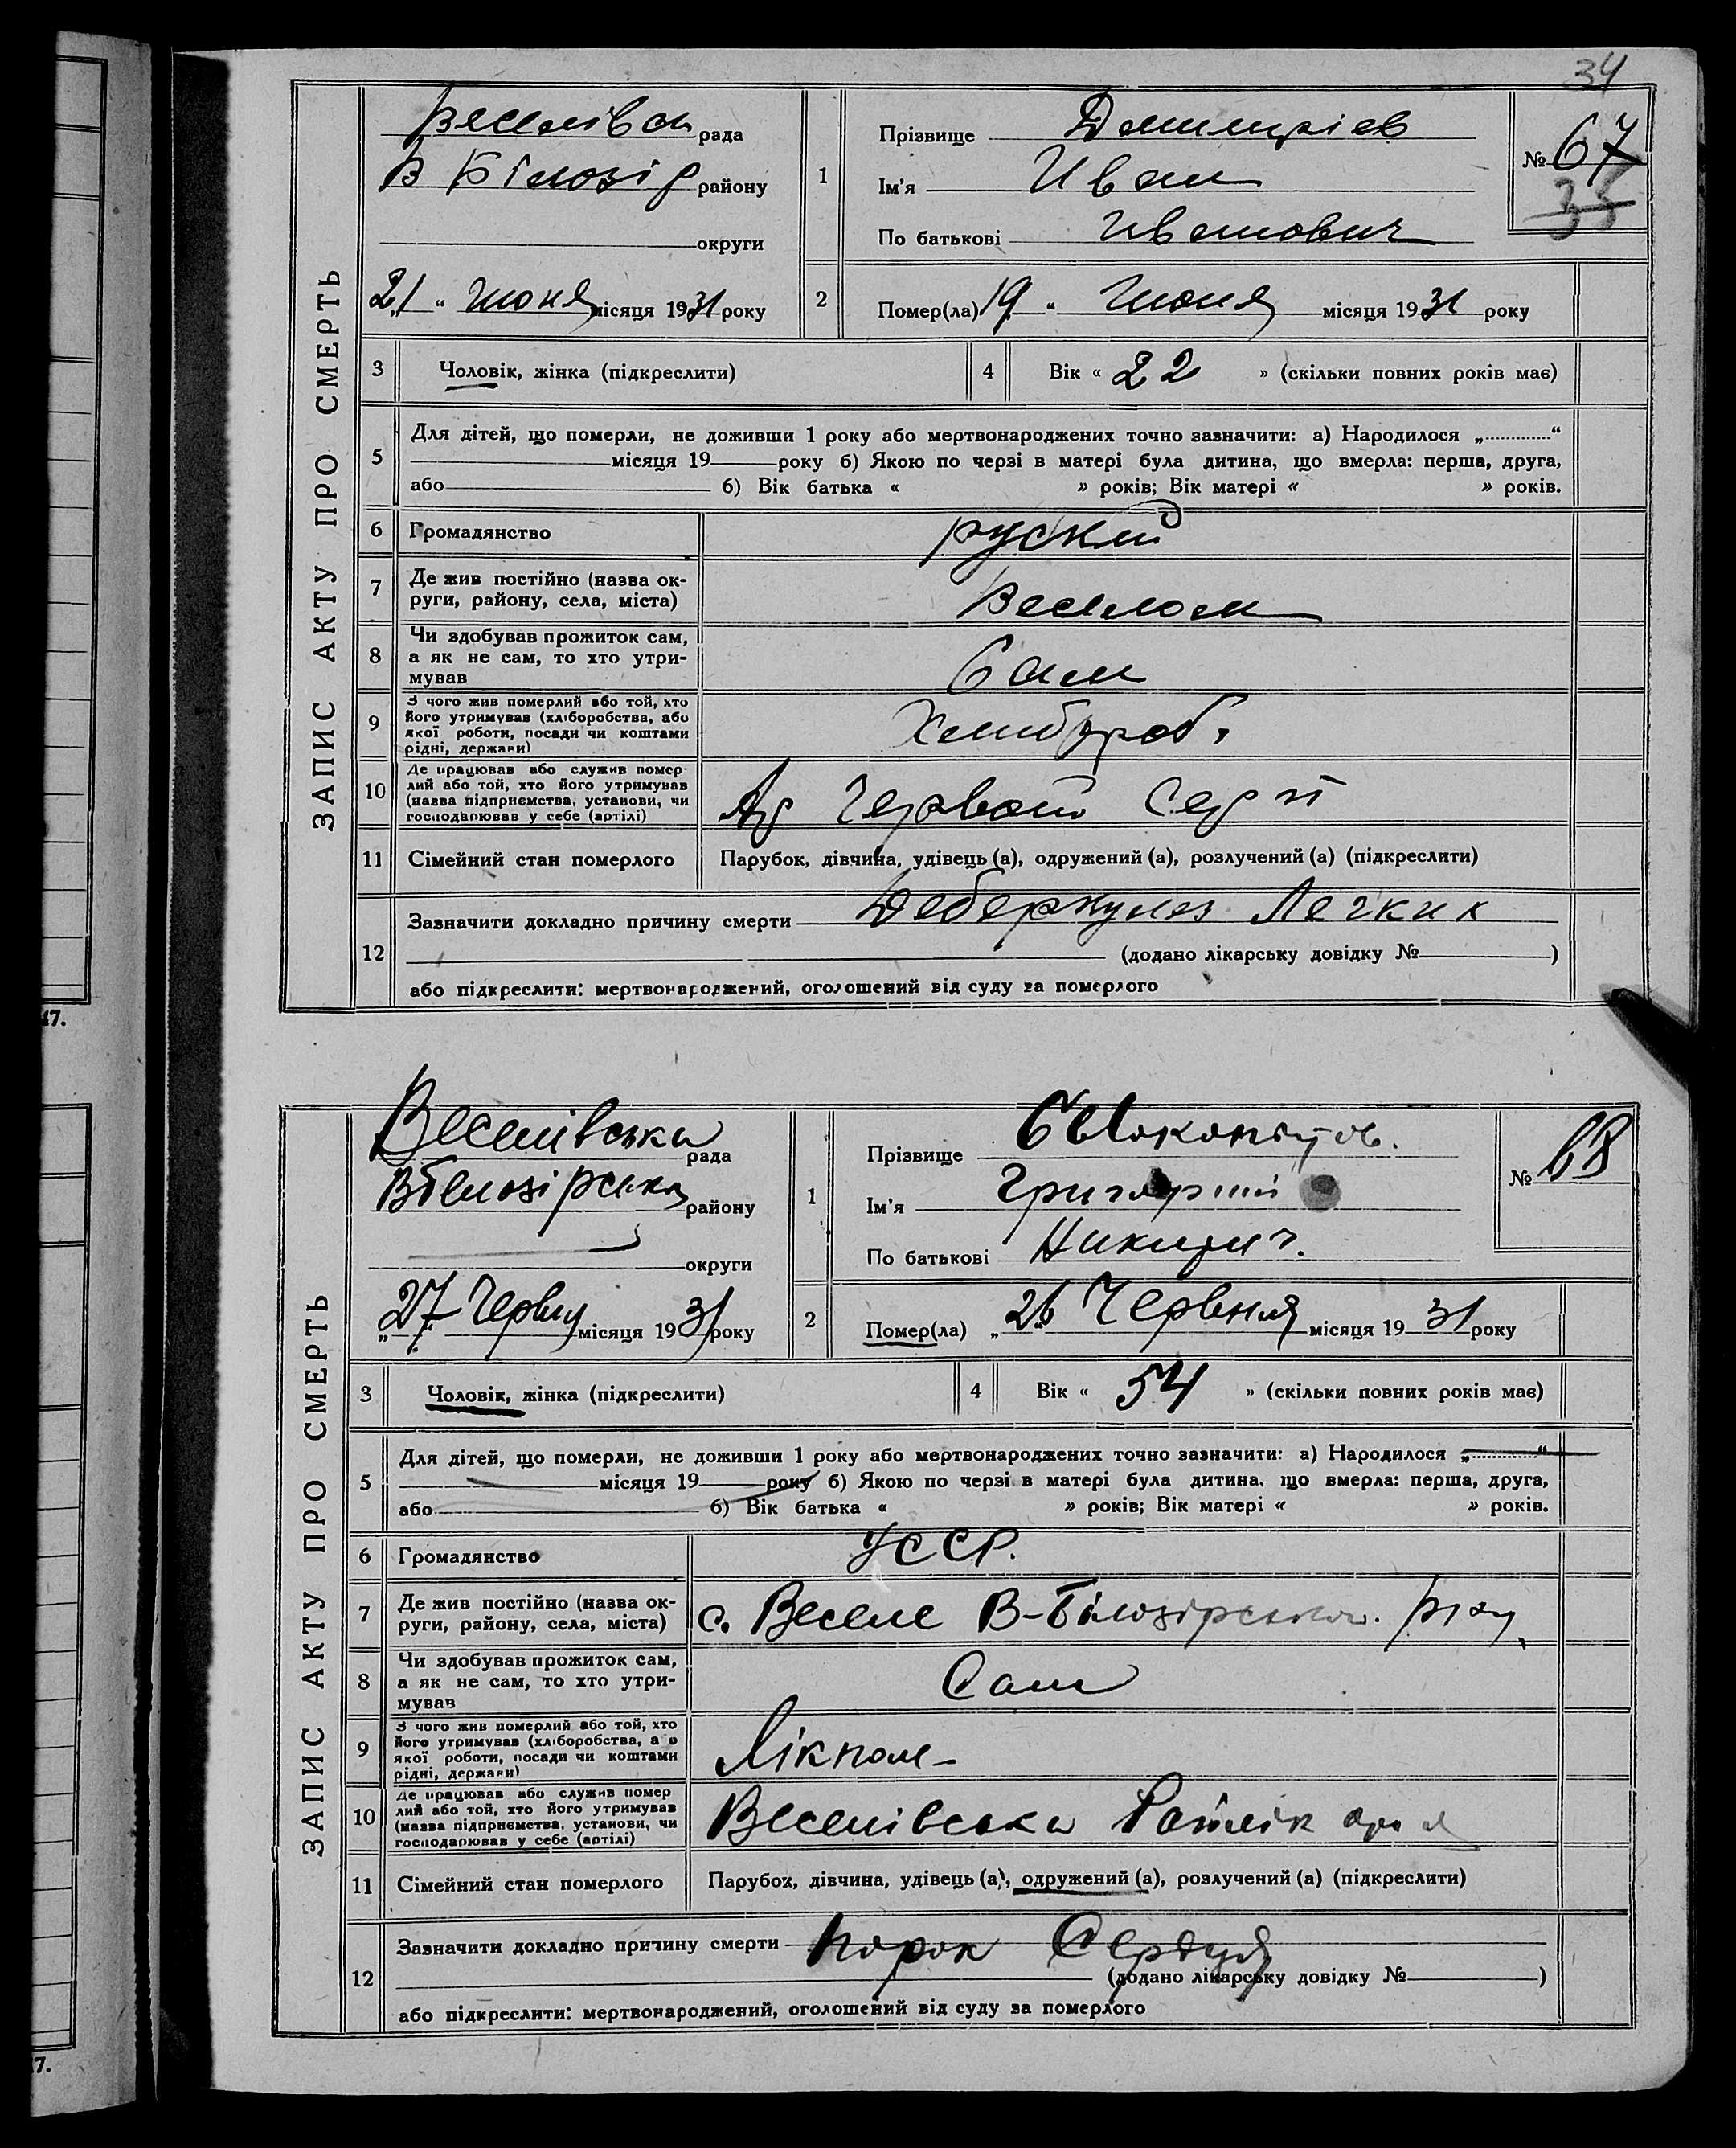 34
ЗАПИС АКТУ ПРО СМЕРТЬ
Веселівск рада
В Білозір району
округи
„21“ Июня місяця 1931 року
1
Прізвище Димитріев
Ім'я Иван
По батькові Иванович
№ 67
35
2
Помер(ла) 19 “ Июня місяця 1931 року
3 Чоловік, жінка (підкреслити)
4 Вік « 22 » (скільки повних років має)
5 Для дітей, що померли, не доживши 1 року або мертвонароджених точно зазначити: а) Народилося „ “
місяця 19 року б) Якою по черзі в матері була дитина, що вмерла: перша, друга,
або б) Вік батька « » років; Вік матері « » років.
6 Громадянство руский
7 Де жив постійно (назва ок-
руги, району, села, міста) Веселом
8 Чи здобував прожиток сам,
а як не сам, то хто утри-
мував Сам
9 З чого жив померлий або той, хто
його утримував (хліборобства, або
якої роботи, посади чи коштами
рідні, держави)
10 Де працював або служив помер-
лий або той, хто його утримував
(назва підприємства, установи, чи
господарював у себе (артілі) Ар Червоний Серп
11 Сімейний стан померлого Парубок, дівчина, удівець (а), одружений (а), розлучений (а) (підкреслити)
12 Зазначити докладно причину смерти Деберкулез Легких
(додано лікарську довідку № )
або підкреслити: мертвонароджений, оголошений від суду за померлого
ЗАПИС АКТУ ПРО СМЕРТЬ
Веселівська рада
ВБілозірська району
округи
„27“ Червня місяця 1931 року
1
Прізвище
Ім'я Григорий
По батькові Никитич.
№ 68
2
Помер(ла) „26 Червня місяця 1931 року
3 Чоловік, жінка (підкреслити)
4 Вік « 54 » (скільки повних років має)
5 Для дітей, що померли, не доживши 1 року або мертвонароджених точно зазначити: а) Народилося „ “
місяця 19 року б) Якою по черзі в матері була дитина, що вмерла: перша, друга,
або б) Вік батька « » років; Вік матері « » років.
6 Громадянство УССР.
7 Де жив постійно (назва ок-
руги, району, села, міста) с. Веселе В-Білозірськ.
8 Чи здобував прожиток сам,
а як не сам, то хто утри-
мував Сам
9 З чого жив померлий або той, хто
його утримував (хліборобства, або
якої роботи, посади чи коштами
рідні, держави) Лікпом-
10 Де працював або служив помер
лий або той, хто його утримував
(назва підприємства, установи, чи
господарював у себе (артілі) Веселівська
11 Сімейний стан померлого Парубок, дівчина, удівець (а), одружений (а), розлучений (а) (підкреслити)
12 Зазначити докладно причину смерти порок Сердця
(додано лікарську довідку № )
або підкреслити: мертвонароджений, оголошений від суду за померлого
47.
7.